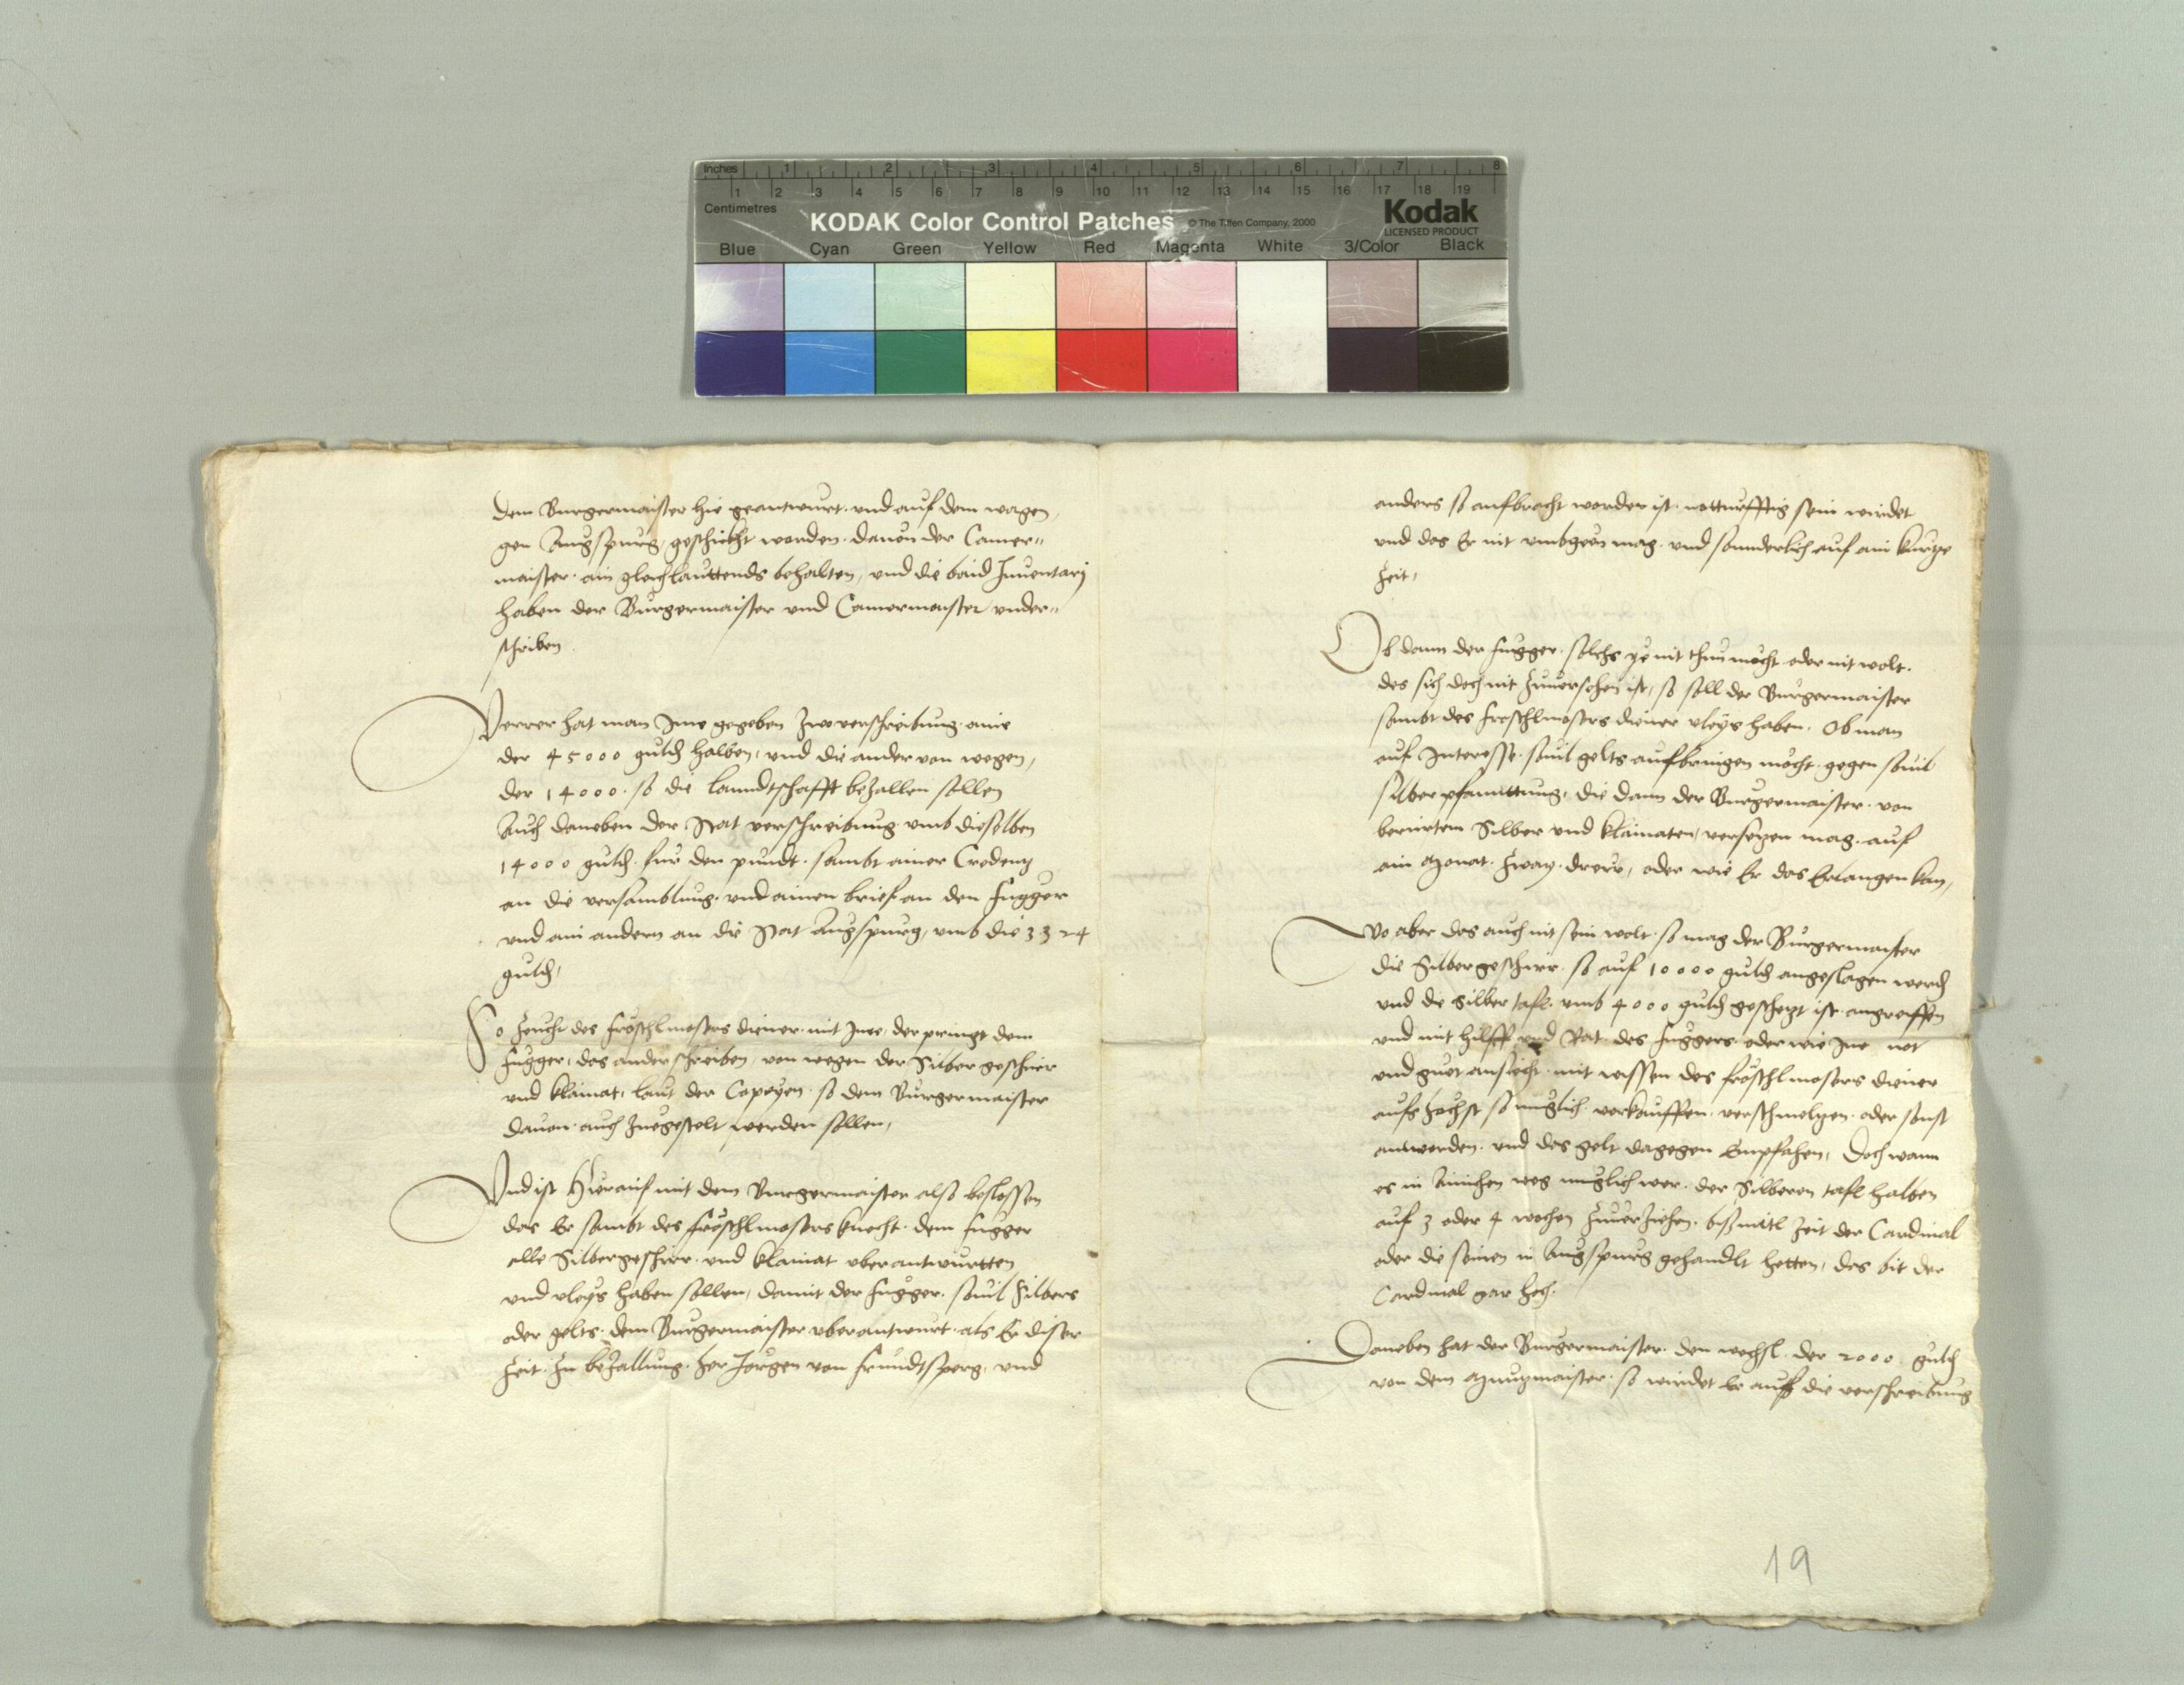 Inches 1 2 3 4 5 6 7 8
1 2 3 4 5 6 7 8 9 10 11 12 13 14 15 16 17 18 19
Centimetres
KODAK Color Control Patches © The Tiffen Company, 2000 Kodak
LICENSED PRODUCT
Blue Cyan Green Yellow Red Magenta White 3/Color Black
dem Burgermaister hie geantwurt. und auf dem wagen,
gen Augspurg, geschickht worden. dauon der Camer„
maister. ain gleichlauttends behalten, und die baid Inventarj
haben der Burgermaister und Camermaister under„
schriben.
Verrer hat man Ime gegeben zwo verschreibung. aine
der 45000 guld halben, und die ander von wegen,
der 14000. so die lanndtschafft bezallen sollen
Auch daneben der Stat verschreibung umb dieselben
14000 guld. fur den pundt. sambt ainer Credentz
an die versamblung. und ainen brief an den Fugger
und ain andern an die Stat Augspurg, umb die 3324
guld,
So zeucht des Fröschlmosers diener mit Ime, der pringt dem
Fugger, das ander schreiben, von wegen der Silber geschirr
und klainat, laut der Copeyen. so dem Burgermaister
dauon. auch zuegestelt werden sollen,
Und ist Hierauf mit dem Burgermaister also beslossen
das Er sambt des Fröschlmosers knecht. dem Fugger
alle Silbergeschirr. und klainat uberantwurtten
und vleys haben sollen, damit der Fugger. souil Silbers
oder gelts. dem Burgermaister uberantwurt. als Er diser
Zeit. zu bezallung. her Jorgen von Frundtsperg, und
anders so aufbracht worden ist. notturfftig sein wirdet
und das Er nit umbgeen mag. und sonnderlich auf ain kurtze
Zeit,
Ob dann der Fugger. solchs ye nit thun mocht oder nit wolt.
des sich doch nit zuuersehen ist, so soll der Burgermaister
sambt des Froschlmosers diener vleys haben. Ob man
auf Interesse. souil gelts aufbringen mocht. gegen souil
Silber pfanndtung, die dann der Burgermaister. von
berurtem Silber und klainaten, versetzen mag. auf
ain Monat. Zway. drew, oder wie Er das Erlangen kan,
Wo aber das auch nit sein wolt. so mag der Burgermaister
die Silbergeschirr. so auf 10000 guld angeslagen werd
und die Silber tafl. umb 4000 guld geschetzt ist. angreiffen
und mit hilff und Rat. des Fuggers. oder wie Ine not
und guet ansicht. mit wissen des Fröschlmosers diener
aufs hochst so muglich verkauffen, verschmeltzen. oder sonst
anwerden. und das gelt dagegen Empfahen, Doch wann
es in Ainichen weg muglich wer. der Silberen tafl halben
auf 3 oder 4 wochen zuuerziehen. biß mitl zeit der Cardinal
oder die seinen in Augspurg gehandlt hetten, des bit der
Cardinal gar hoch.
Daneben hat der Burgermaister. den wechsl. der 2000. guld
von dem Muntzmaister. so wirdet Er auf die verschreibung
19